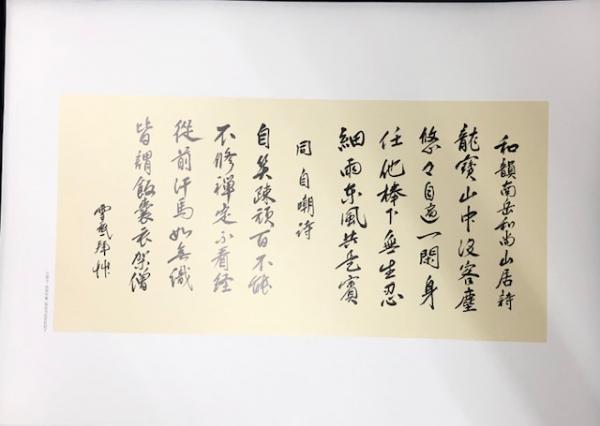 和韻南岳和尚山居詩
龍寶山中没客塵
悠々自適一閑身
任他棒下無生忍
細雨東風共是賓
同自嘲詩
自笑疎頑百不能
不修禪定不看經
從前汗馬如無識
皆謂飯囊衣架僧
雪拜艸